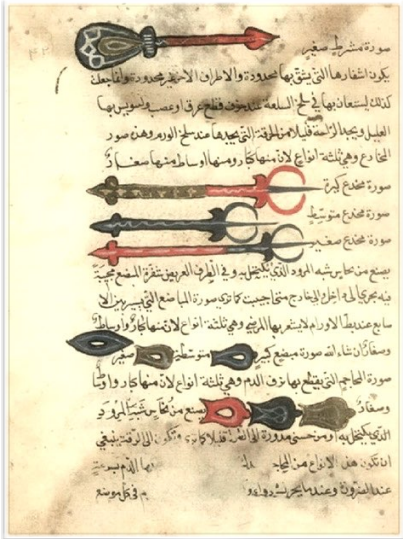 صورة مشرط صغير
يكون اشفارها التى يشق بها محدودة والاطراف الاخر غير محدودة وانما جعلت
كذلك ليستعان بها فى سلخ السلعة عند خوف قطع عرق او عصب وليونس بها
العليل ويجد الراحة قليلا من الحرقة التى يجدها عند سلخ الورم وهذه صور
المخادع وهى ثلثة انواع لان منها كبار ومنها اوساط ومنها صغار
صورة مخدع كبير
صورة مخدع متوسط
صورة مخدع صغير
يصنع من نحاس شبه المرود الذى يكتحل به وفى الطرف العريض
فيه يجرى الى داخل والى خارج متى احببت كما ترى صورة المباضع التى
عند بط الاورام لا يشعر بها المريض وهى ثلثة انواع لان منها كبار واوساط
وصغار ان شاء الله صورة مبضع كبير متوسط صغير
صورة المحاجم التى يقطع بها نزف الدم وهى ثلثة انواع لان منها كبار واوساط
وصغار يصنع من نحاس شبه المرود
الذى يكتحل به او من مدورة الى الطول قليلا كما ترى وتكون الى الرقة ينبغى
ان تكون هذه الانواع من بها الدم
عند الضرورة وعندما فى كل موضع